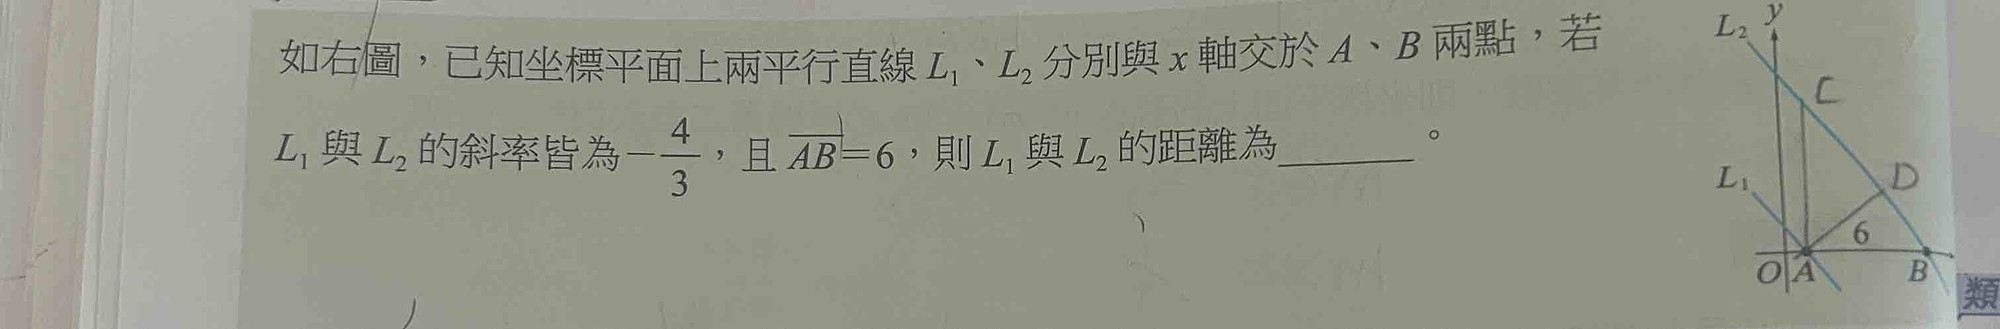 如右圖，已知坐標平面上兩平行直線 L₁、L₂ 分別與 x 軸交於 A、B 兩點，若
L₁ 與 L₂ 的斜率皆為 −4/3，且 AB̅=6，則 L₁ 與 L₂ 的距離為______。
L₂ y
C
L₁ D
6
O A B
類